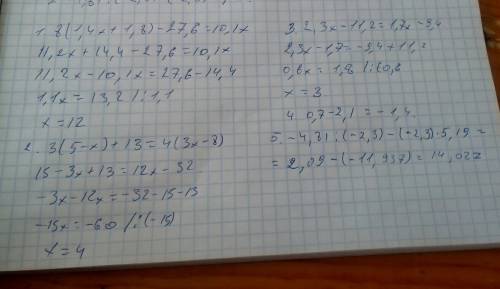 1. 8(1,4x+1,8)-27,6=10,1x
11,2x+14,4-27,6=10,1x
11,2x-10,1x=27,6-14,4
1,1x=13,2 |:1,1
x=12
2. 3(5-x)+13=4(3x-8)
15-3x+13=12x-32
-3x-12x=-32-15-13
-15x=-60 /:(-15)
x=4
3. 2,3x-11,2=1,7x-9,4
2,3x-1,7=-9,4+11,2
0,6x=1,8 |:(0,6
x=3
4. 0,7-2,1=-1,4.
5. -4,81:(-2,3)-(-2,3)·5,19=
=2,09-(-11,937)=14,027